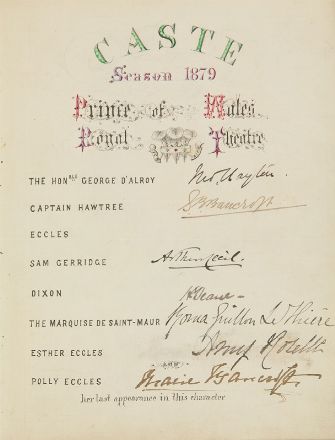 CASTE
Season 1879
Prince of Wales
Royal Theatre
THE HONBLE GEORGE D'ALROY
CAPTAIN HAWTREE S B Bancroft
ECCLES
SAM GERRIDGE Arthur Cecil.
DIXON H Deane
THE MARQUISE DE SAINT-MAUR Roma Guillon Le Thière
ESTHER ECCLES Amy Roselle
AND
POLLY ECCLES Marie Bancroft
her last appearance in this character